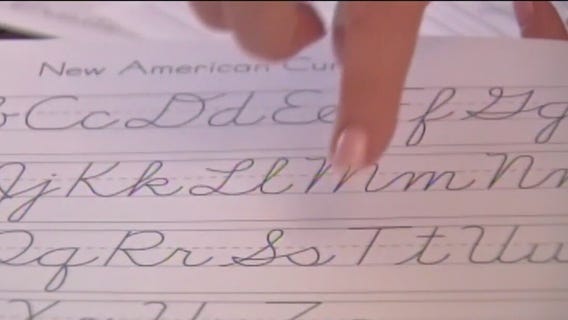 New American Cur
b Cc Dd Ee Ff Gg
Jj Kk Ll Mm Nn
Qq Rr Ss Tt Uu